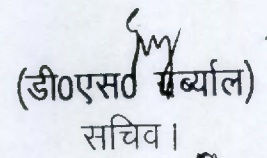 (डी०एस० गर्ब्याल)
सचिव।